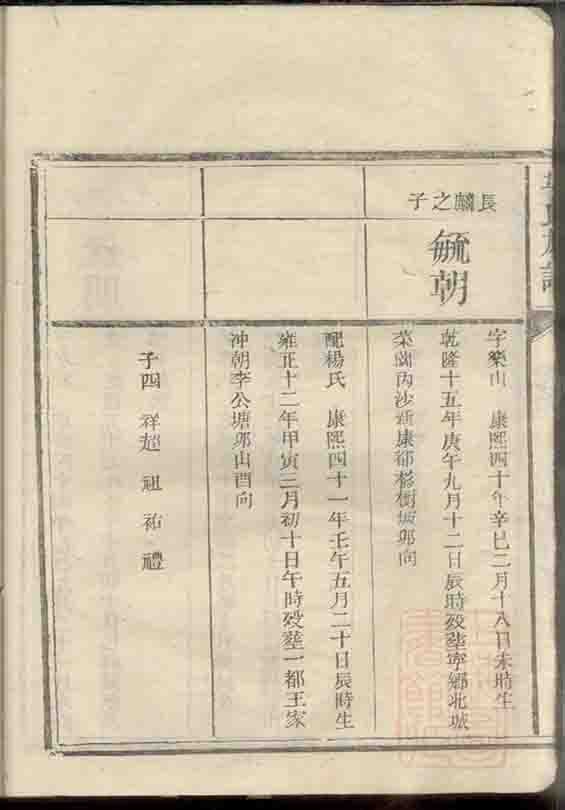 氏族譜
長麟之子
毓朝
字樂山 康熙四十年辛巳二月十八日未時生
乾隆十五年庚午九月十二日辰時歿塟寧鄉北城
菜園內沙新康都杉樹坡卯向
配楊氏 康熙四十一年壬午五月二十日辰時生
雍正十二年甲寅三月初十日午時歿塟一都王家
沖朝李公塘卯山酉向
子四 祥超 祖 祐 禮